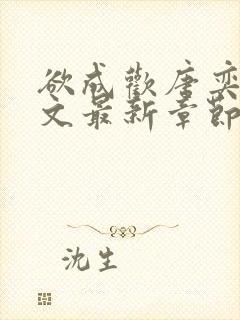 欲成欢唐奕
文最新章節
沈生